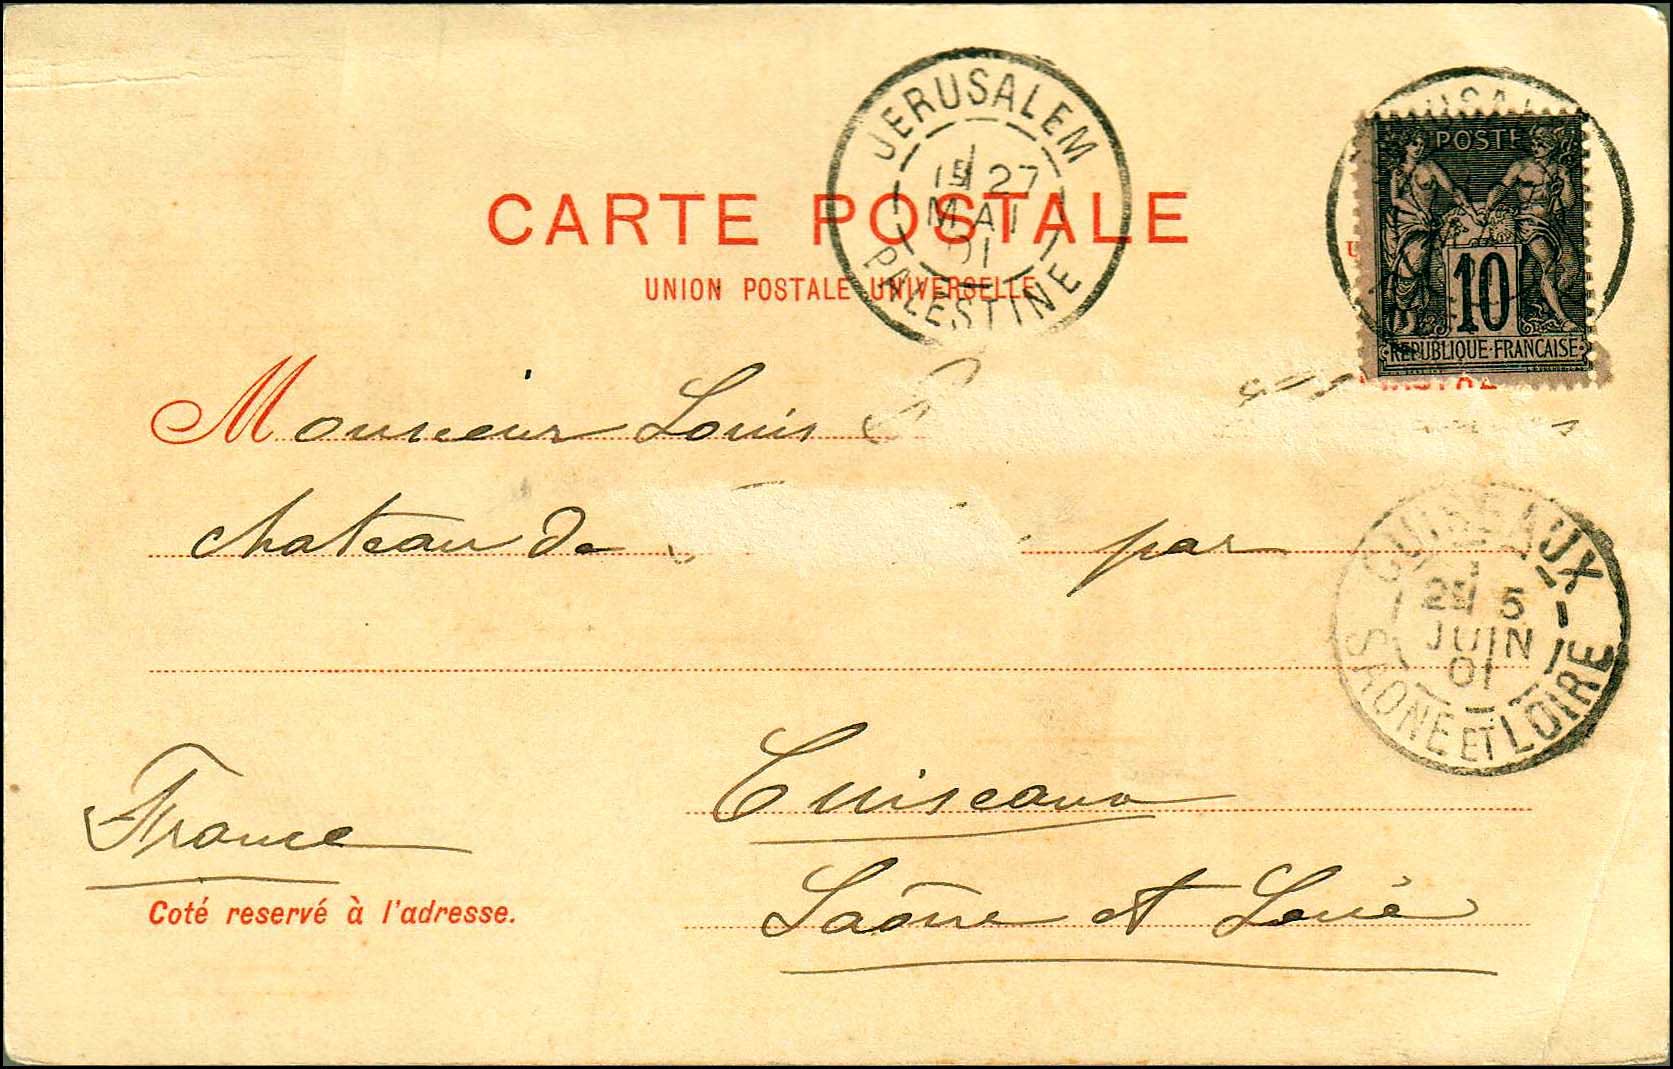 CARTE POSTALE
UNION POSTALE UNIVERSELLE
JERUSALEM
27
MAI
01
PALESTINE
POSTE
10
REPUBLIQUE·FRANCAISE
Monsieur Louis
chateau de par
CUISEAUX
5
JUIN
01
SAONE ET LOIRE
Cuiseaux
France
Saône et Loire
Coté reservé à l'adresse.